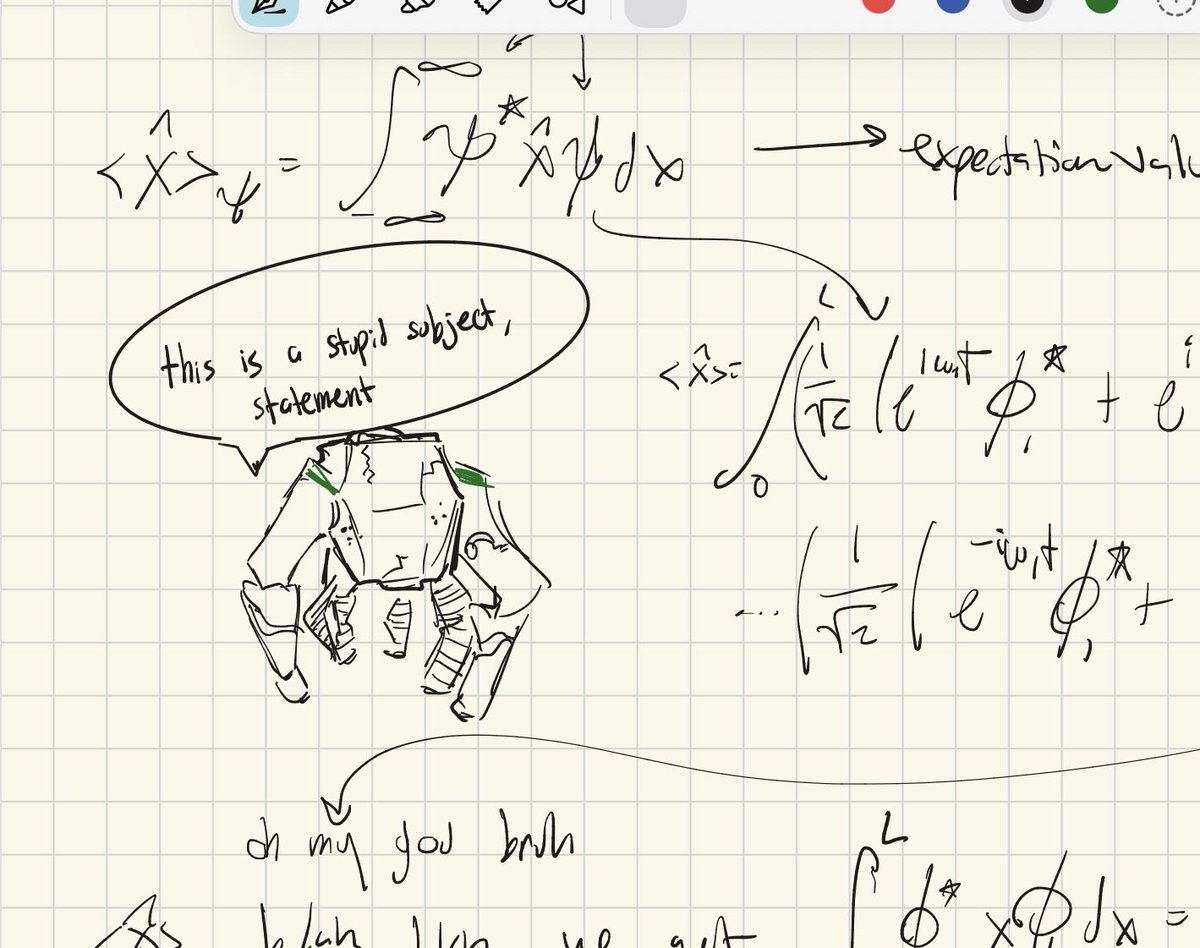 <x̂>ψ = ∫_{-∞}^{∞} ψ* x̂ ψ dx → expectation valu
this is a stupid subject,
statement
<x̂> = ∫_0^L (1/√2 (e^{iω₁t} ϕ₁* + e^i
... (1/√2 (e^{-iω₁t} ϕ₁* +
oh my god bruh
∫^L ϕ* x ϕ dx =
<x> blah blah we get